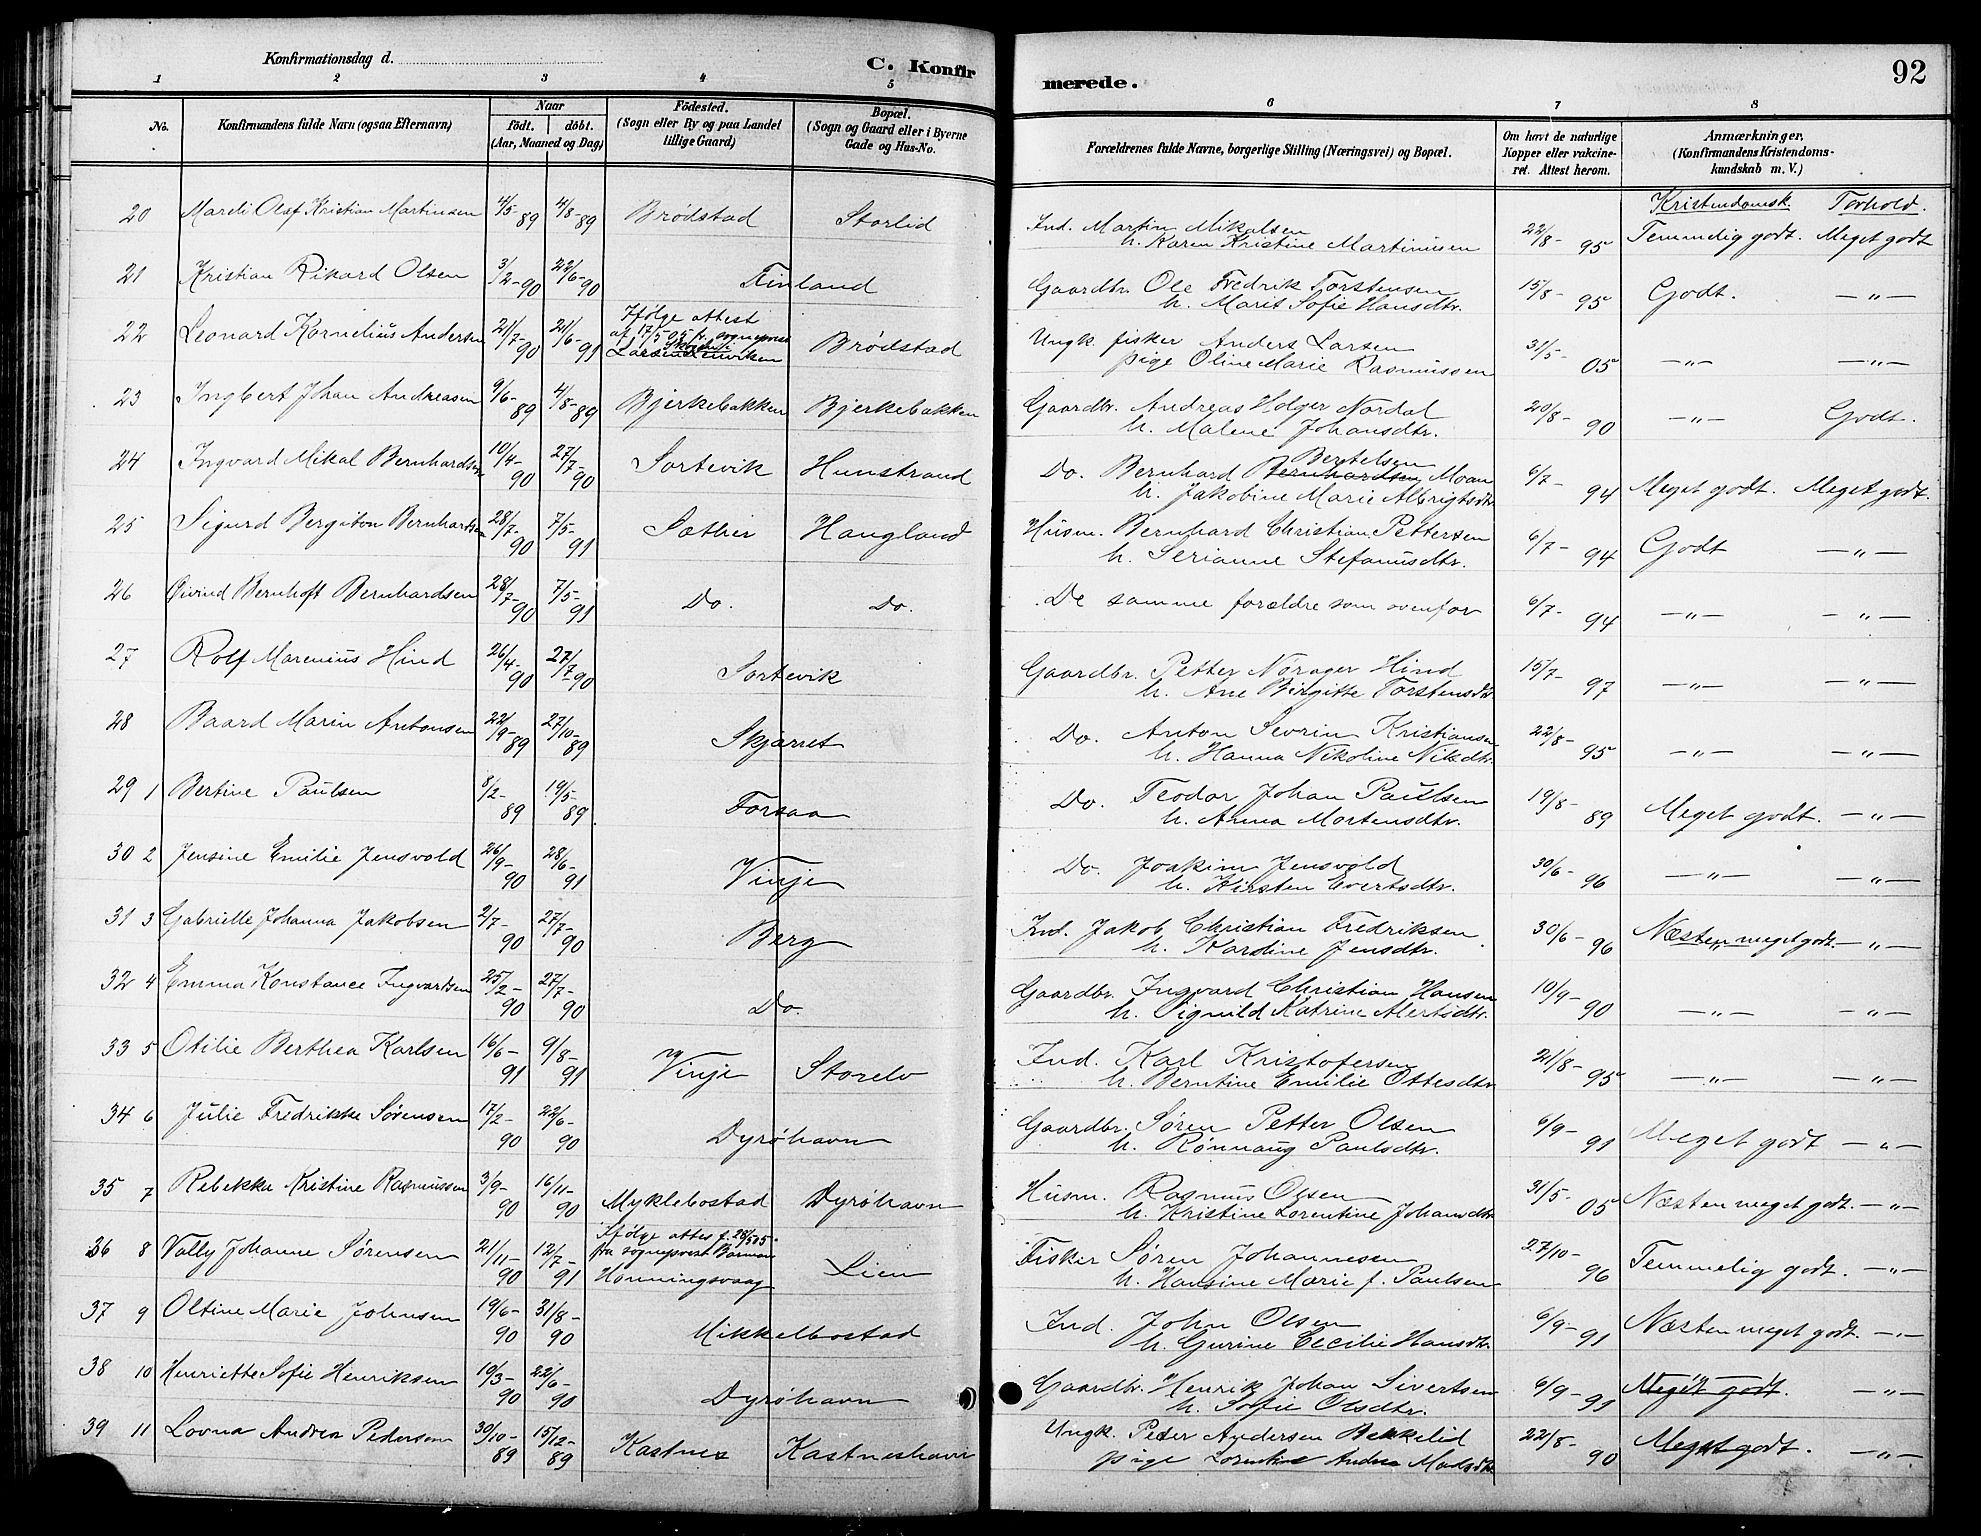 Konfirmationsdag d.
C. Konfir
merede.
92
1 2 3 4 5 6 7 8
No.
Konfirmandens fulde Navn (ogsaa Efternavn)
Naar
födt. döbt.
(Aar, Maaned og Dag)
Födested.
(Sogn eller By og paa Landet
tillige Gaard)
Bopæl.
(Sogn og Gaard eller i Byerne
Gade og Hus-No.
Forældrenes fulde Navne, borgerlige Stilling (Næringsvei) og Bopæl.
Om havt de naturlige
Kopper eller vakcine-
ret. Attest herom.
Anmærkninger.
(Konfirmandens Kristendoms-
kundskab m. V.)
Kristendomsk. Forhold.
20 Mareli Olaf Kristian Martinsen 4/5-89 4/8-89 Brödstad Storlid
Ind. Martin Mikalsen
h. Karen Kristine Martinusen 22/8-95 Temmelig godt. Meget godt
21 Kristian Rikard Olsen 3/2-90 22/6-90 Finland
Gaardbr. Ole Fredrik Torstensen
h. Marit Sofie Hansdtr. 15/8-95 Godt. —"—
22 Leonard Kornelius Andersen 21/7-90 21/6-91 Ifölge attest
af 17/5 05 fr. sogneprest
Larsen Lenviken Brödstad
Ungk. fisker Anders Larsen
pige Oline Marie Rasmussen 31/5-05 —"— —"—
23 Ingbert Johan Andreasen 9/6-89 4/8-89 Bjerkebakken Bjerkebakken
Gaardbr. Andreas Holger Nordal
h. Malene Johansdtr. 20/8-90 —"— Godt.
24 Ingvard Mikal Bernhardsen 10/4-90 27/7-90 Sortevik Hunstrand
Bertelsen
Do. Bernhard Bernhardsen Moan
h. Jakobine Marie Albrigtsdtr. 6/7-94 Meget godt. Meget godt.
25 Sigurd Bergiton Bernhardsen 28/7-90 7/5-91 Sæther Haugland
Husm. Bernhard Christian Pettersen
h. Serianne Stefanusdtr. 6/7-94 Godt —"—
26 Øivind Bernhoft Bernhardsen 28/7-90 7/5-91 Do. Do.
De samme forældre som ovenfor 6/7-94 —"— —"—
27 Rolf Marenius Hind 26/4-90 27/7-90 Sortevik
Gaardbr. Petter Norager Hind
h. Ane Birgitte Torstensdtr 15/7-97 —"— —"—
28 Baard Marin Antonsen 22/9-89 27/10-89 Skjærret
Do. Anton Sevrin Kristiansen
h. Hanna Nikoline Nilsdtr. 22/8-95 —"— —"—
29 1 Bertine Paulsen 8/2-89 19/5-89. Forsaa
Do. Teodor Johan Paulsen
h. Anna Mortensdtr. 19/8-89 Meget godt. —"—
30 2 Jensine Emilie Jensvold 26/9-90 28/6-91 Vinje
Do. Joakim Jensvold
h. Kirsten Evertsdtr. 30/6-96 —"— —"—
31 3 Gabrielle Johanna Jakobsen 2/7-90 27/7-90 Berg
Ind. Jakob Christian Fredriksen
h. Kardine Jensdtr. 30/6-96 Næsten meget godt. —"—
32 4 Emma Konstance Ingvardsen 25/2-90 27/7-90 Do.
Gaardbr. Ingvard Christian Hansen
h. Signild Katrine Alertsdtr. 10/9-90 —"— —"—
33 5 Otilie Berthea Karlsen 16/6-91 9/8-91 Vinje Storelv
Ind. Karl Kristofersen
h. Berntine Emilie Ottesdtr 21/8-95 —"— —"—
34 6 Julie Fredrikke Sørensen 17/2-90 22/6-90 Dyröhavn
Gaardbr. Søren Petter Olsen
h. Rønnaug Paulsdtr. 6/9-91 Meget godt —"—
35 7 Rebekka Kristine Rasmussen 3/9-90 16/11-90 Myklebostad Dyröhavn
Husm. Rasmus Olsen
h. Kristine Lorentine Johansdtr 31/5-05 Næsten meget godt. —"—
36 8 Vally Johanne Sørensen 21/11-90 12/7-91 Ifølge attes f. 28/5 05
fra sogneprest Borman
Honningsvaag Lien
Fisker Søren Johannesen
h. Hansine Marie f. Paulsen 27/10-96 Temmelig godt. —"—
37 9 Oltine Marie Johnsen 19/6-90 31/8-90 Mikkelbostad
Ind. John Olsen
h. Gurine Cecilie Hansdtr. 6/9-91 Næsten meget godt. —"—
38 10 Henriette Sofie Henriksen 19/3-90 22/6-90 Dyröhavn
Gaardbr. Henrik Johan Sivertsen
h. Sofie Olsdtr. 6/9-91 Meget godt. —"—
39 11 Lovna Andrea Pedersen 30/10-89 15/12-89 Kastnes Kastneshavn
Ungk. Peder Andersen Bekkelid
pige Lorentine Andrea Madsdtr. 22/8-90 Meget godt. —"—